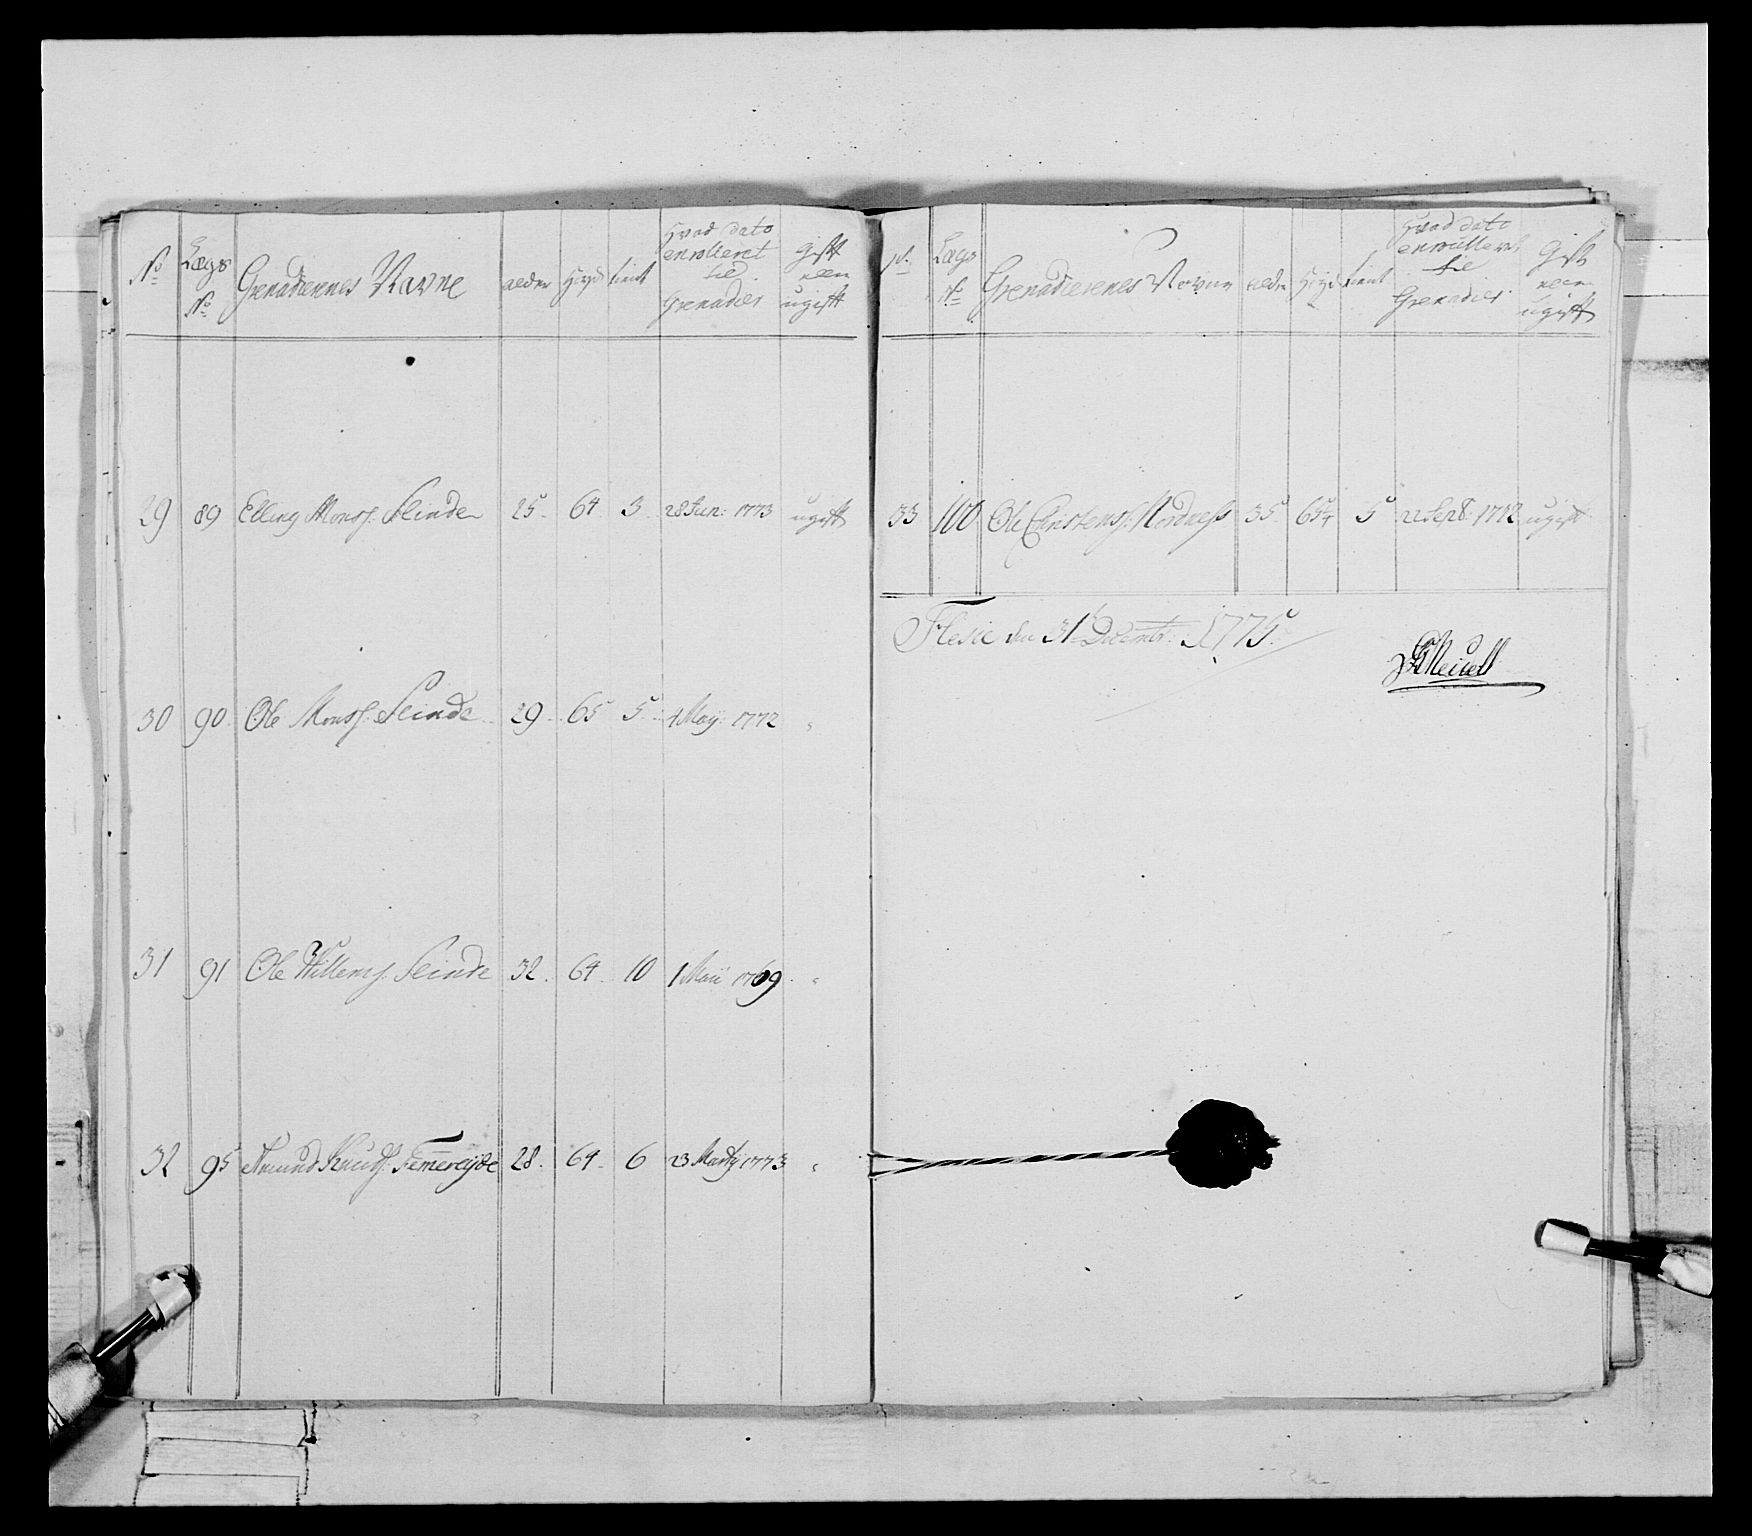 No Lægs No Grenadiernes Navne alder Høyd tient Hvad dato enrolleret til Grenadier Gift eller ugift
29 89 Elling Monss: Slinde 25 64 3 28 Jun: 1773 ugift
30 90 Ole Monss: Slinde 29 65 5 4 May 1772 "
31 91 Ole Willems: Slinde 32 64 10 1 Maii 1769 "
32 95 Amund Knuds: 28 64 6 23 Marty 1773 "
No Lægs No Grenadierenes Navne alder Høyd tient Hvad dato enroulleret til Grenadier Gift eller ugift
33 100 Ole Christens: Nordness 35 5 1772 ugift
Flesie den 31 Decembr: 1775